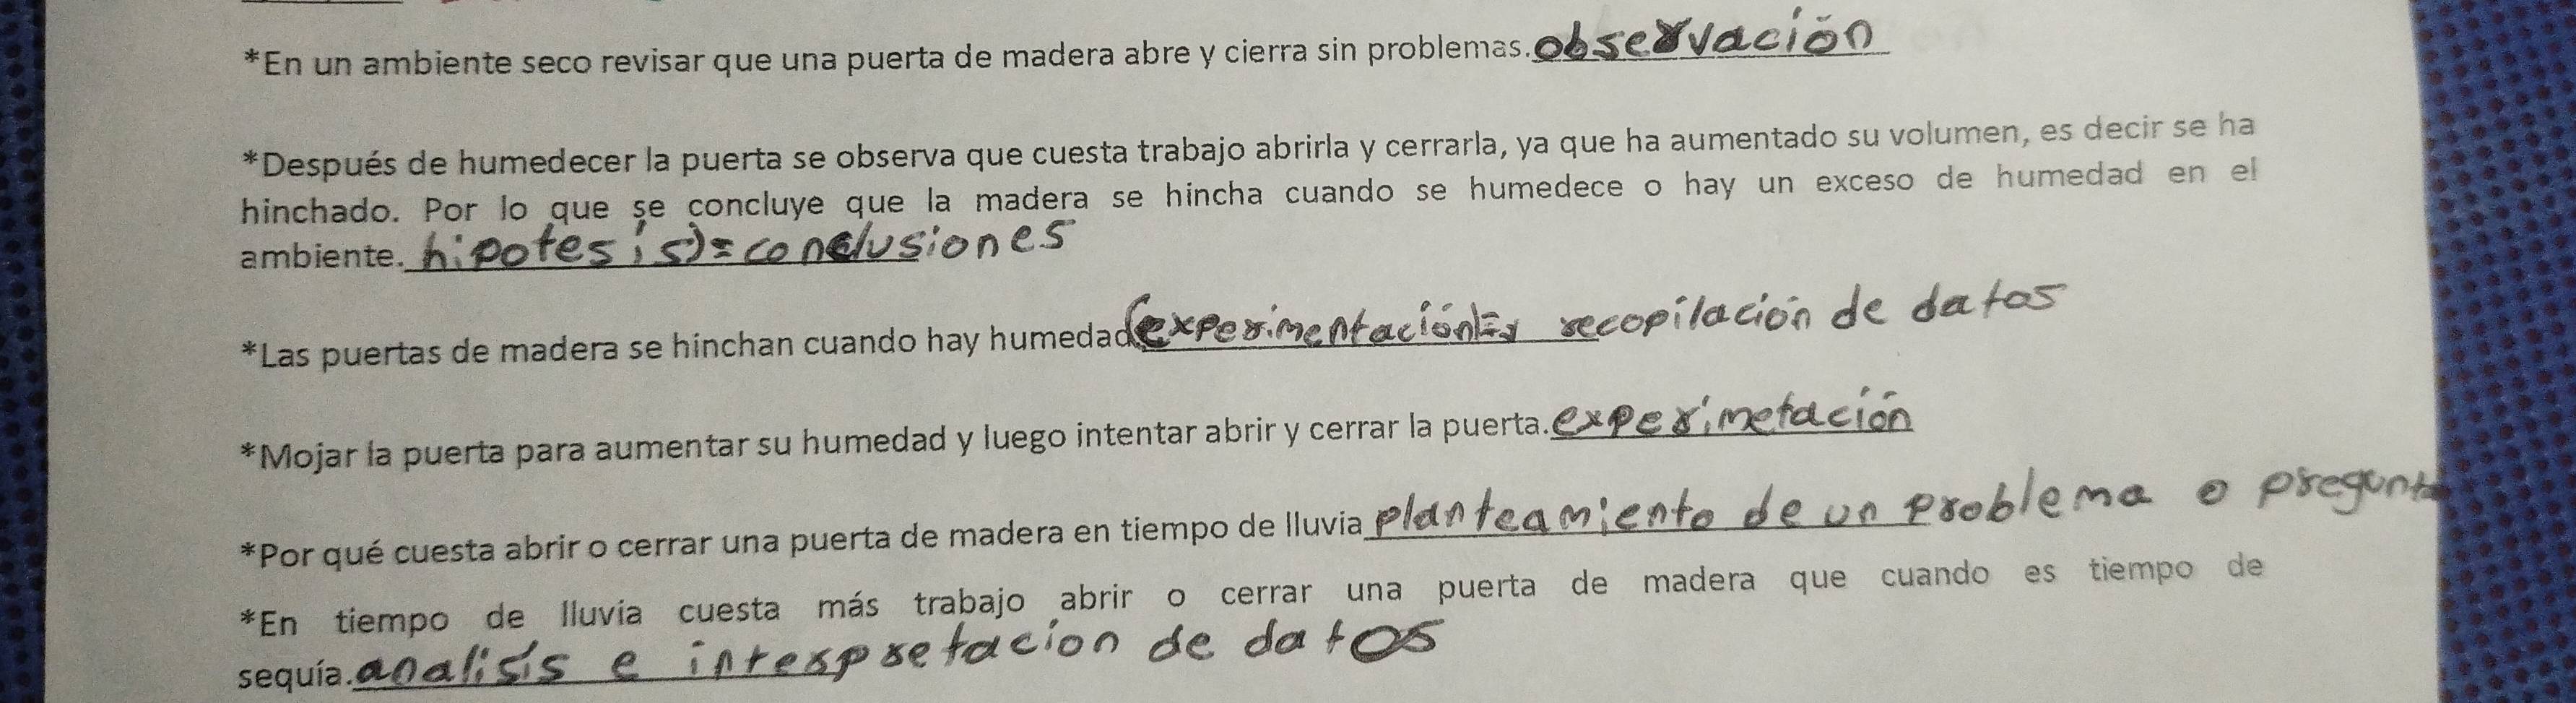 *En un ambiente seco revisar que una puerta de madera abre y cierra sin problemas. observación
*Después de humedecer la puerta se observa que cuesta trabajo abrirla y cerrarla, ya que ha aumentado su volumen, es decir se ha
hinchado. Por lo que se concluye que la madera se hincha cuando se humedece o hay un exceso de humedad en el
ambiente. hipotesis)= conclusiones
*Las puertas de madera se hinchan cuando hay humedad (experimentación)= recopilación de datos
*Mojar la puerta para aumentar su humedad y luego intentar abrir y cerrar la puerta. experimetación
*Por qué cuesta abrir o cerrar una puerta de madera en tiempo de lluvia planteamiento de un problema o pregunta
*En tiempo de lluvia cuesta más trabajo abrir o cerrar una puerta de madera que cuando es tiempo de
sequía. analisis e interpretacion de datos